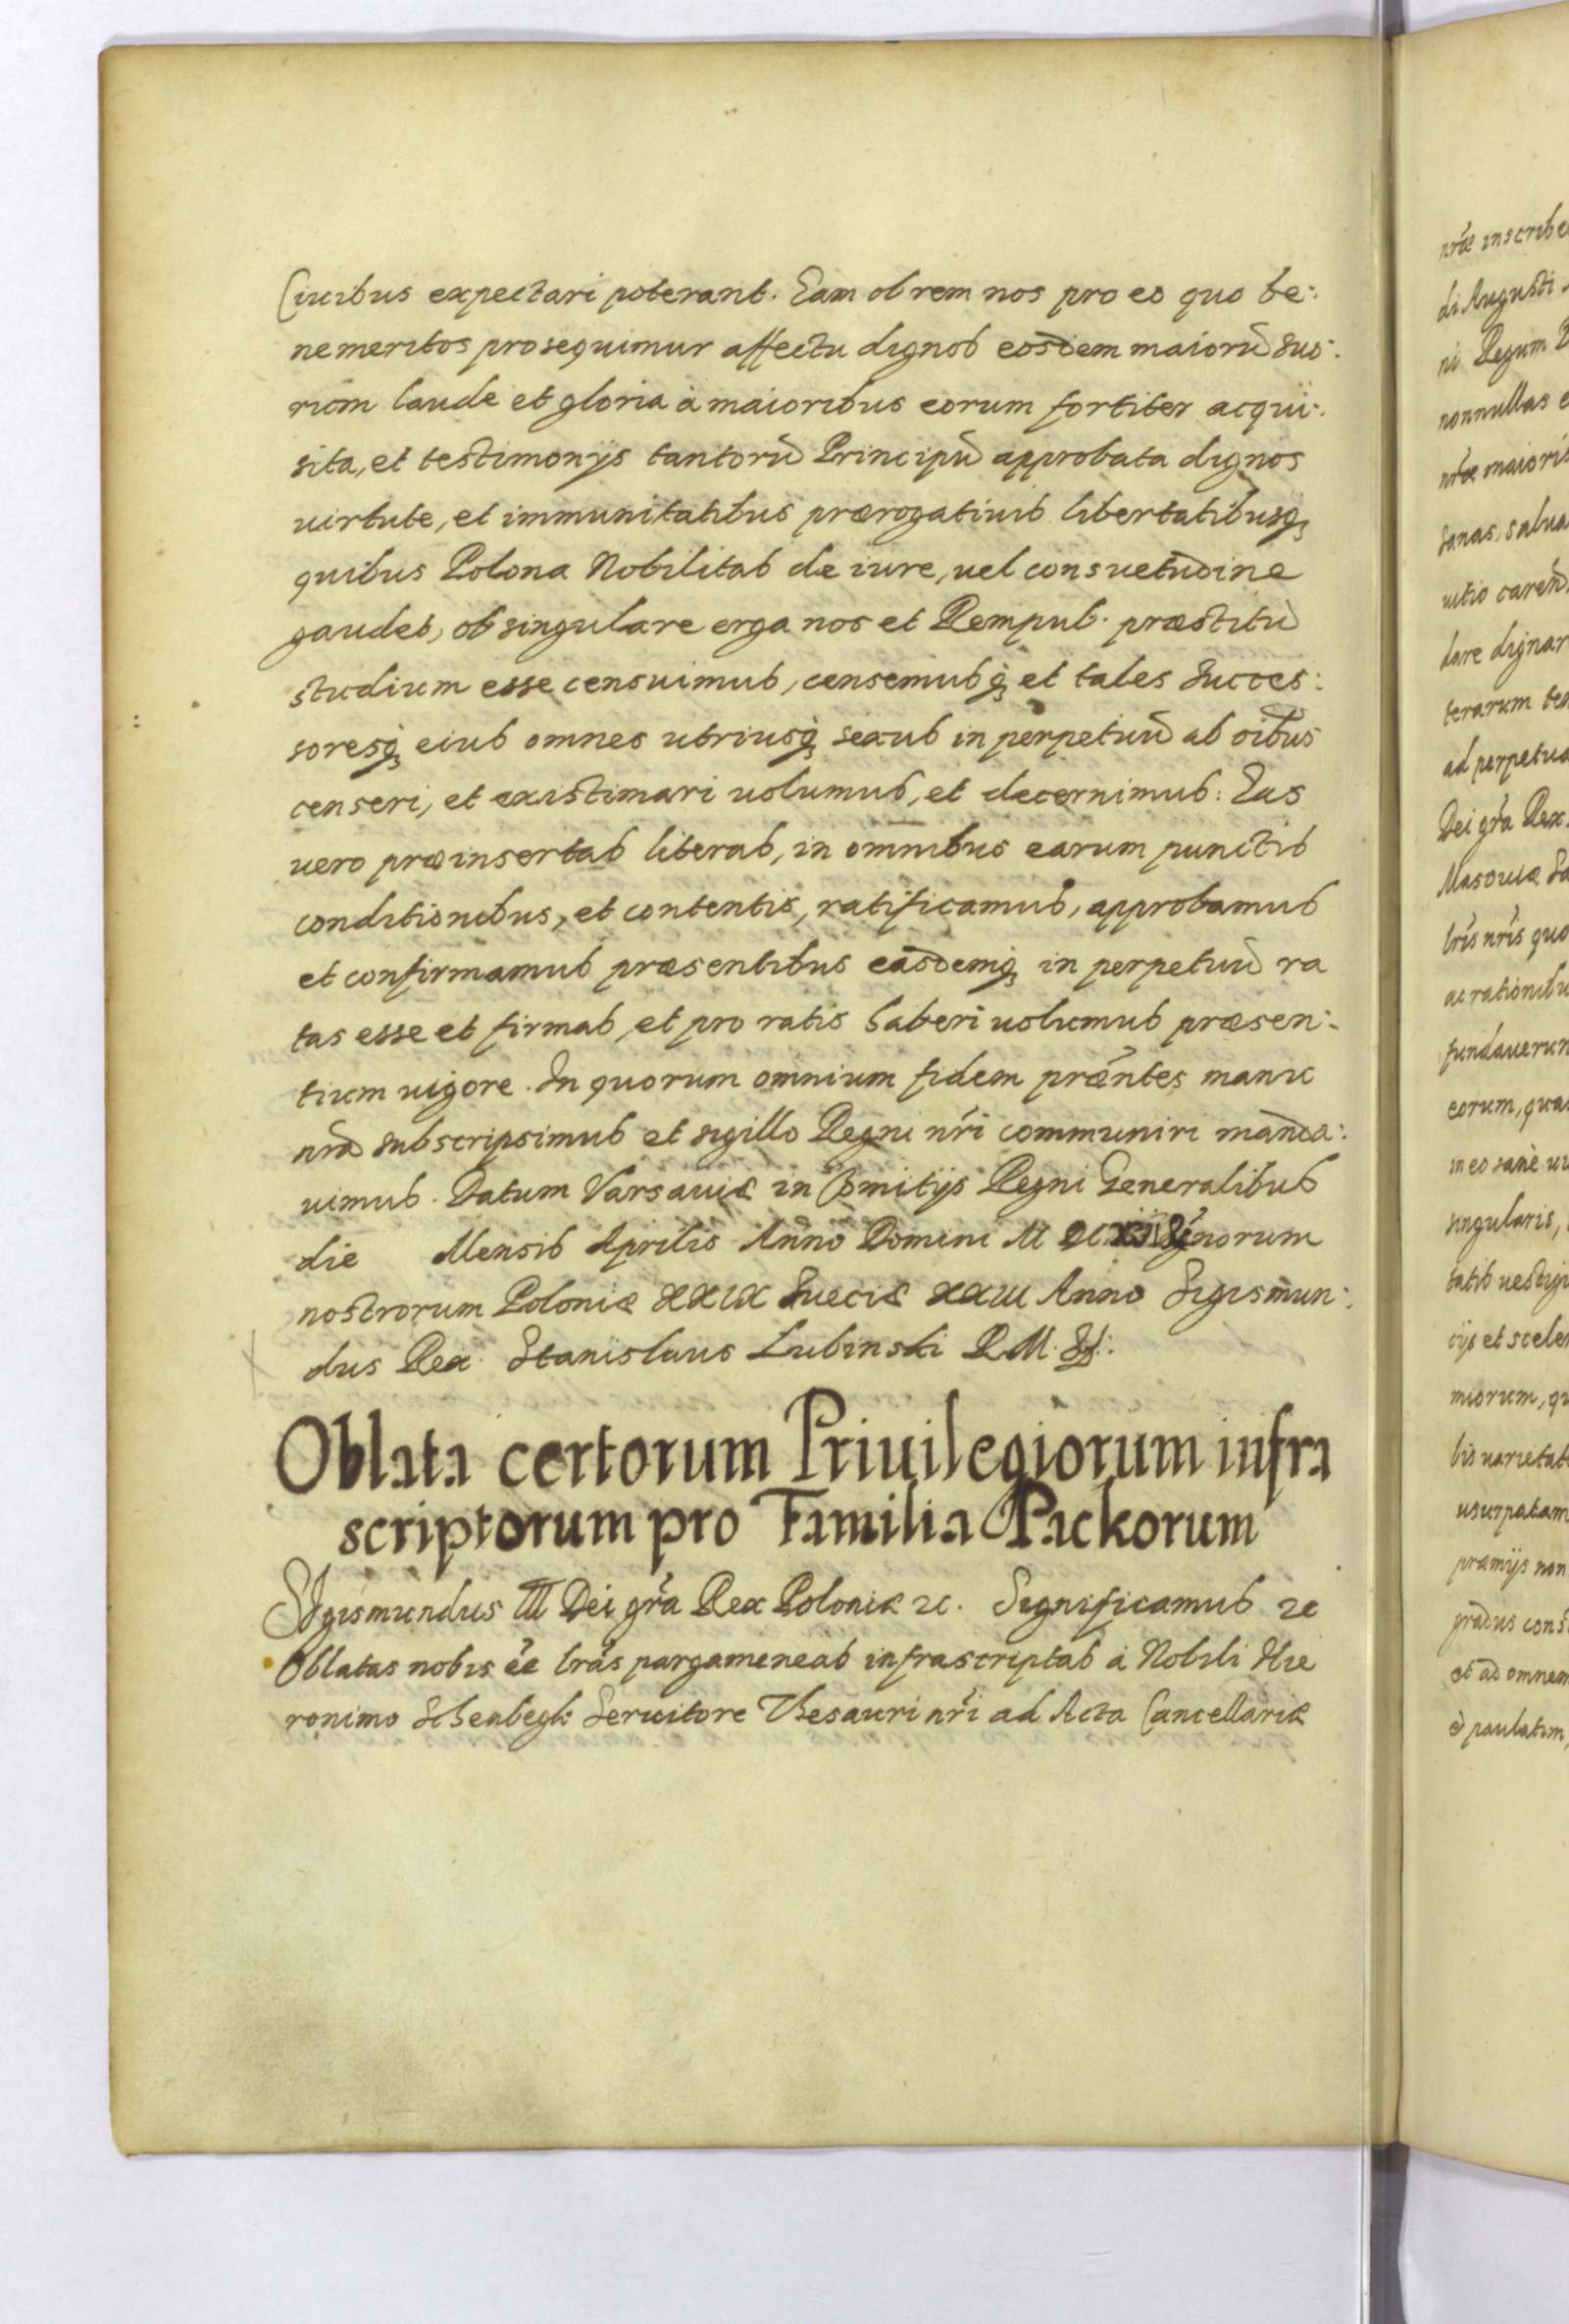 Ciuibus expectari poterant. Eam ob rem nos pro eo quo be:
nemeritos prosequimur affectu dignos eosdem maiorũ suo:
rum laude et gloria à maioribus eorum fortiter acqui:
sita, et testimonijs tantorũ Principũ approbata dignos
uirtute, et immunitatibus prærogatiuis libertatibusq́
quibus Polona Nobilitas de iure, uel consuetudine
gaudet, ob singulare erga nos et Rempub. præstitũ
studium esse censuimus, censemusq́ et tales succes:
soresq́ eius omnes utriusq́ sexus in perpetuũ ab oĩbus
censeri, et existimari uolumus, et decernimus: Eas
uero præinsertas literas, in omnibus earum punctis
conditionibus, et contentis, ratificamus, approbamus
et confirmamus præsentibus easdemq́ in perpetuũ ra
tas esse et firmas, et pro ratis haberi uolumus præsen:
tium uigore. In quorum omnium fidem præ̃ntes manu
nrã subscripsimus et sigillo Regni nr̃i communiri manda:
uimus. Datum Varsauiæ in Comitijs Regni Generalibus
die Mensis Aprilis Anno Domini M DC Regnorum
nostrorum Poloniæ XXIX Sueciæ XXIII Anno Sigismun:
dus Rex. Stanislaus Lubinski R. M. S:
Oblata certorum Priuilegiorum infra
scriptorum pro Familia Packorum
SIgismundus III Dei gr̃a Rex Poloniæ zc. Significamus zc
Oblatas nobis ẽe lr̃as pargameneas infrascriptas à Nobili Hie
ronimo Seruitore Thesauri nr̃i ad Acta Cancellariæ
nr̃æ inscribe
di Augusti
ni Regum
nonnullas e
nr̃æ maioris
sanas, salua
uitio caren
dare dignar
terarum ten
ad perpetua
Dei gr̃a Rex
Masouiæ Sa
lr̃is nr̃is quo
ac rationibu
fundauerun
eorum, qua
in eo sanè ui
singularis,
tatis uestigi
cijs et sceler
miorum, qu
bis uarietat
usurpatam
præmijs non
gradus const
et ad omnem
paulatim,